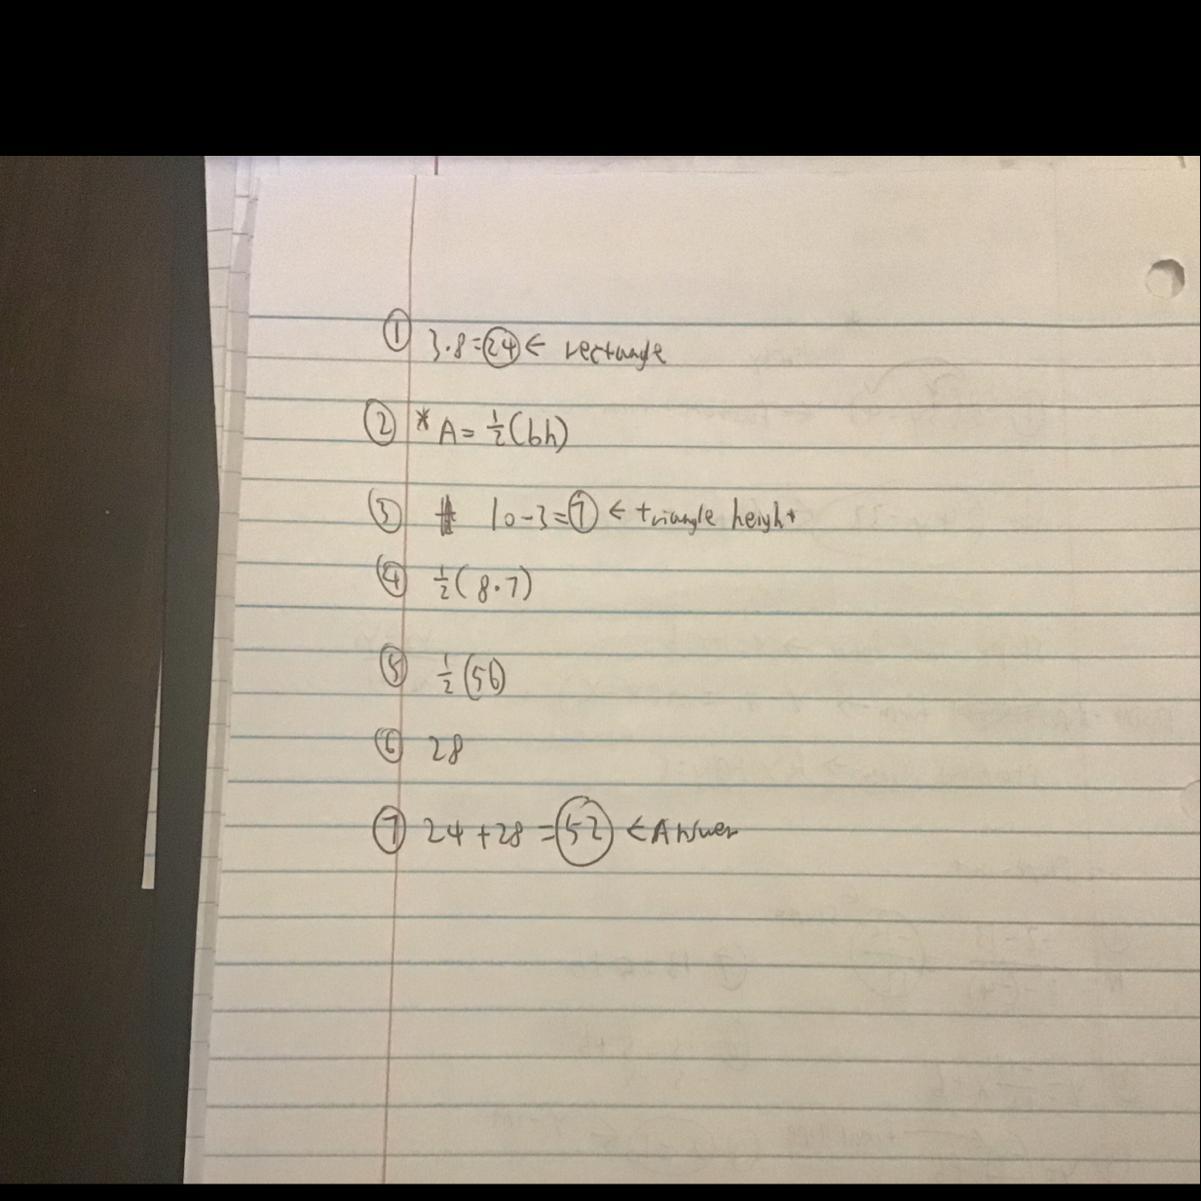 ① 3·8=24← rectangle
② * A=½(bh)
③ 10-3=7 ← triangle height
④ ½(8·7)
⑤ ½(56)
⑥ 28
⑦ 24+28=52 ←Answer